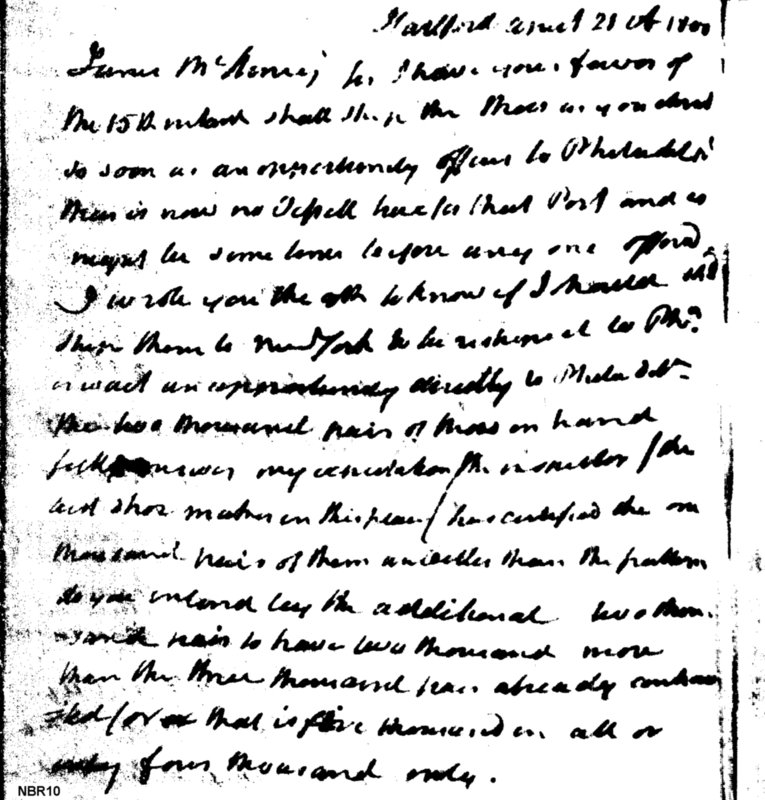 Hartford August 21st 1800
James McHenry Sr I have your favor of
the 15th instant shall ship the Shoes as you direct
so soon as an oppertunity offers to Philadelpa
there is now no Vessell here for that Port and it
might be some time before any one offord
I wrote you the 9th to know if I should
ship them to New York to be reshiped to Pha
or wait an oppertunity directly to Philadela
the two thousand pair of Shoes on hand
fully answer my expectation the inspector (the
best shoe maker in this place) has certified the one
thousand pairs of them are better than the pattern
do you intend by the additional two thou-
sand pair to have two thousand more
than the three thousand pair already contrac
ted for that is five thousand in all or
only four thousand only.
NBR10